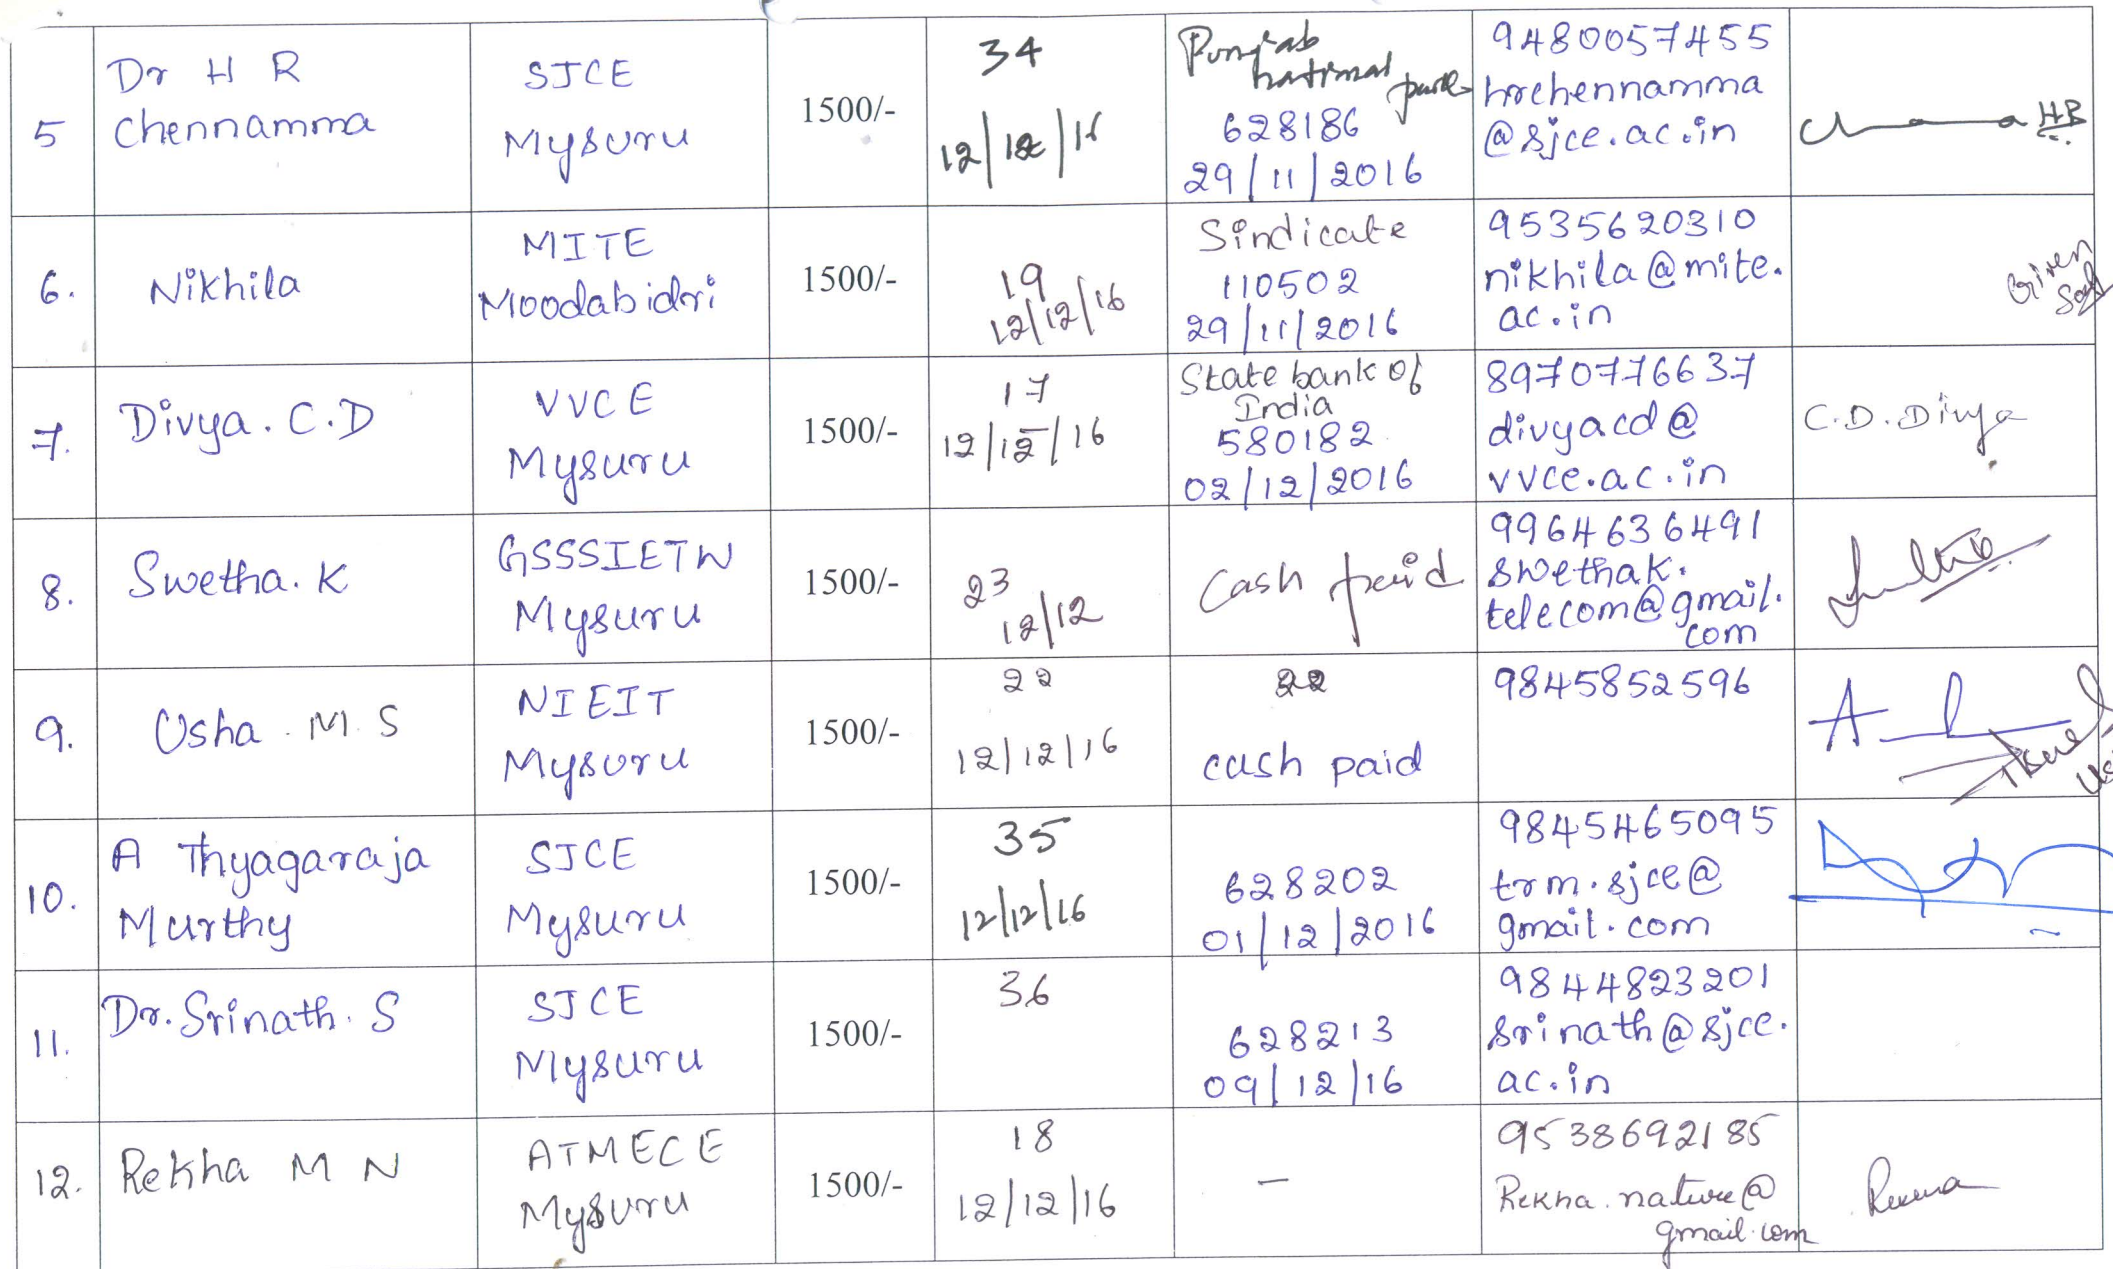 5
Dr H R
Chennamma
SJCE
Mysuru
1500/-
34
12/12/16
Punjab
national
628186
29/11/2016
9480057455
hrchennamma
@sjce.ac.in
HR
6.
Nikhila
MITE
Moodabidri
1500/-
19
12/12/16
Sindicate
110502
29/11/2016
9535620310
nikhila@mite.
ac.in
Given
7.
Divya. C.D
VVCE
Mysuru
1500/-
17
12/12/16
State bank of
India
580182
02/12/2016
8970776637
divyacd@
vvce.ac.in
C.D. Divya
8.
Swetha. K
GSSSIETW
Mysuru
1500/-
23
12/12
Cash paid
9964636491
swethak.
telecom@gmail.
com
9.
Usha. M. S
NIEIT
Mysuru
1500/-
22
12/12/16
22
cash paid
9845852596
10.
A Thyagaraja
Murthy
SJCE
Mysuru
1500/-
35
12/12/16
628202
01/12/2016
9845465095
trm.sjce@
gmail.com
11.
Dr. Srinath. S
SJCE
Mysuru
1500/-
36
628213
09/12/16
9844823201
srinath@sjce.
ac.in
12.
Rekha M N
ATMECE
Mysuru
1500/-
18
12/12/16
—
9538692185
Rekha.nature@
gmail.com